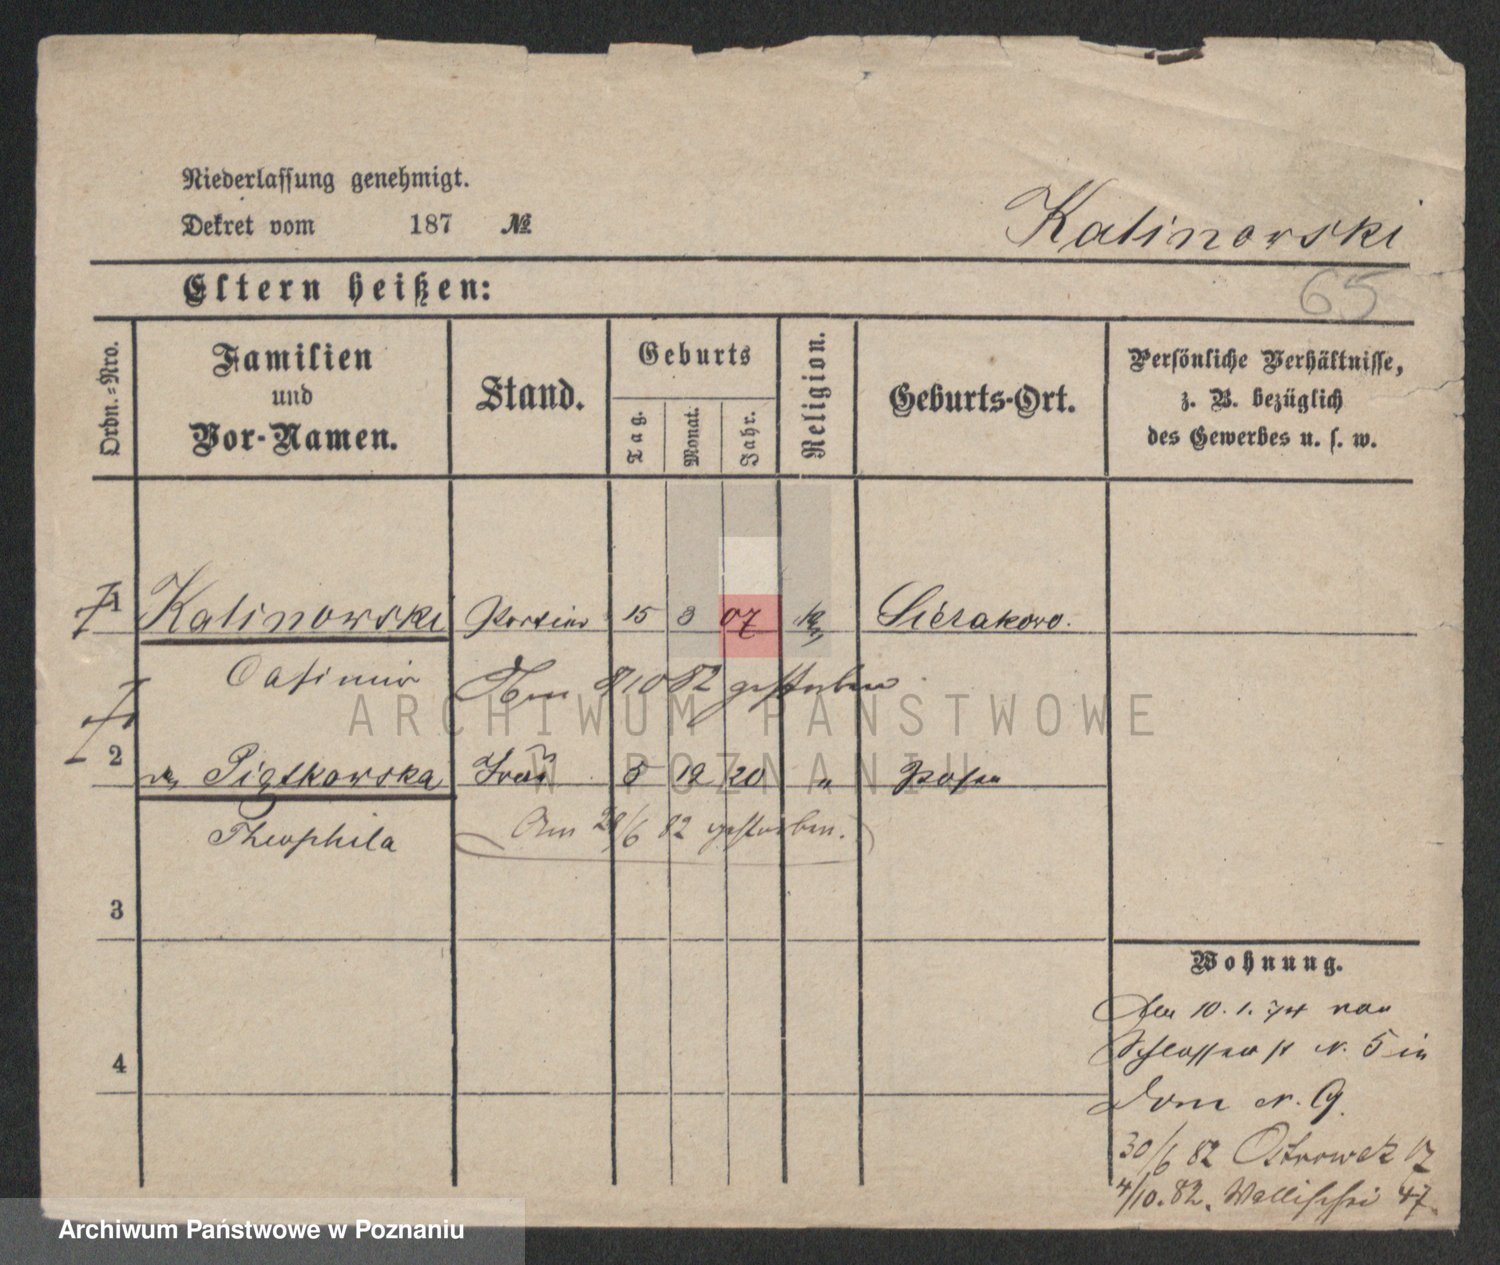 Niederlassung genehmigt.
Dekret vom 187 №
Kalinowski
65
Eltern heißen:
Ordn.-Nro.
Familien
und
Vor-Namen.
Stand.
Geburts
Tag.
Monat.
Jahr.
Religion.
Geburts-Ort.
Persönliche Verhältnisse,
z. B. bezüglich
des Gewerbes u. s. w.
1 Kalinowski Portier 15 3 07 Sierakowo.
Casimir
Am 8/10 82 gestorben
2 Piątkowska Frau 5 12 20 " Posen
Theophila
Am 28/6 82 gestorben.
3
4
Wohnung.
Am 10. 1. 74 von
Schlosserst N. 5 in
Dom N. 9.
30/6 82 Ostrowek 17
4/10. 82. Wallischei 47.
ARCHIWUM PAŃSTWOWE
W POZNANIU
Archiwum Państwowe w Poznaniu